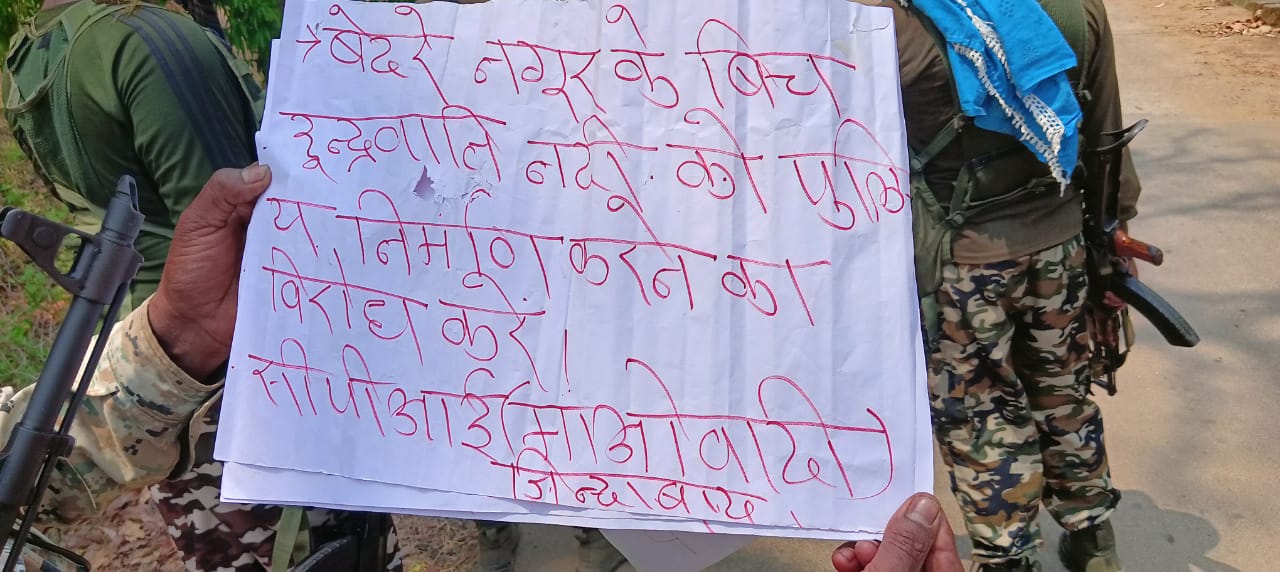 → बेदरे नगूर के बिच
इन्द्रवाति नदी को पुलि
य निर्माण करने का
विरोध करें।
सीपीआई(माओवादी)
जिन्दाबाद,